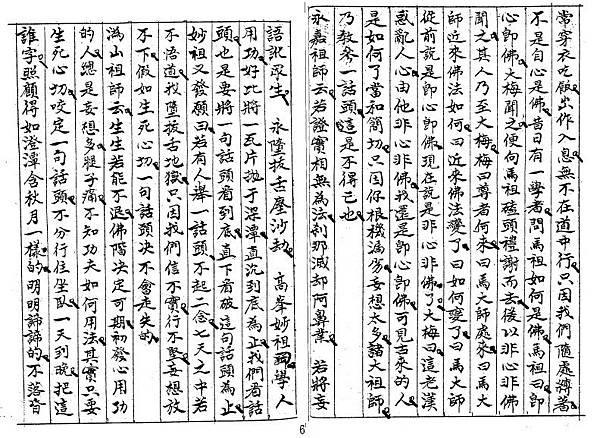 常穿衣吃飯出作入息無不在道中行只因我們隨處縛著
不是自心是佛昔日有一學者問馬祖如何是佛馬祖曰即
心即佛大梅聞之便向馬祖磕頭禮謝而去後以非心非佛
聞之其人乃至大梅梅曰尊者何來曰馬大師處來曰馬大
師近來佛法如何曰近來佛法變了曰如何變了曰馬大師
從前說是即心即佛現在說是非心非佛了大梅曰這老漢
惑亂人心由他非心非佛我還是即心即佛可見古來的人
是如何了當和簡切只因你根機淺劣妄想太多諸大祖師
乃教參一話頭這是不得已也
永嘉祖師云若證實相無為法剎那滅却阿鼻業 若將妄
語誑眾生 永墮拔舌塵沙劫 高峯妙祖曰學人
用功好比將一瓦片拋于深潭直沉到底為止我們看話
頭也是要將一句話頭看到底直下看破這句話頭為止
妙祖又發願曰若有人舉一話頭不起二念七天之中若
不悟道我墮拔舌地獄只因我們信不實行不堅妄想放
不下假如生死心切一句話頭決不會走失的
溈山祖師云生生若能不退佛階決定可期初發心用功
的人總是妄想多腿子痛不知功夫如何用法其實只要
生死心切咬定一句話頭不分行住坐臥一天到晚把這
誰字照顧得如澄潭含秋月一樣的明明諦諦的不落昏
6